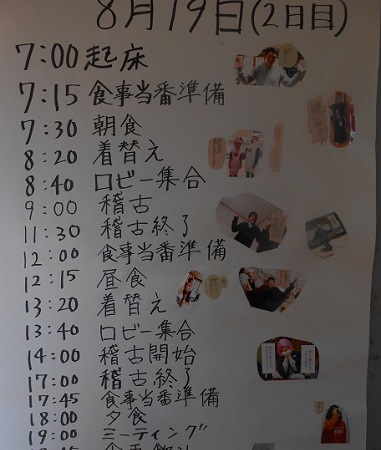 8月19日(2日目)
7:00 起床
7:15 食事当番準備
7:30 朝食
8:20 着替え
8:40 ロビー集合
9:00 稽古
11:30 稽古終了
12:00 食事当番準備
12:15 昼食
13:20 着替え
13:40 ロビー集合
14:00 稽古開始
17:00 稽古終了
17:45 食事当番準備
18:00 夕食
19:00 ミーティング